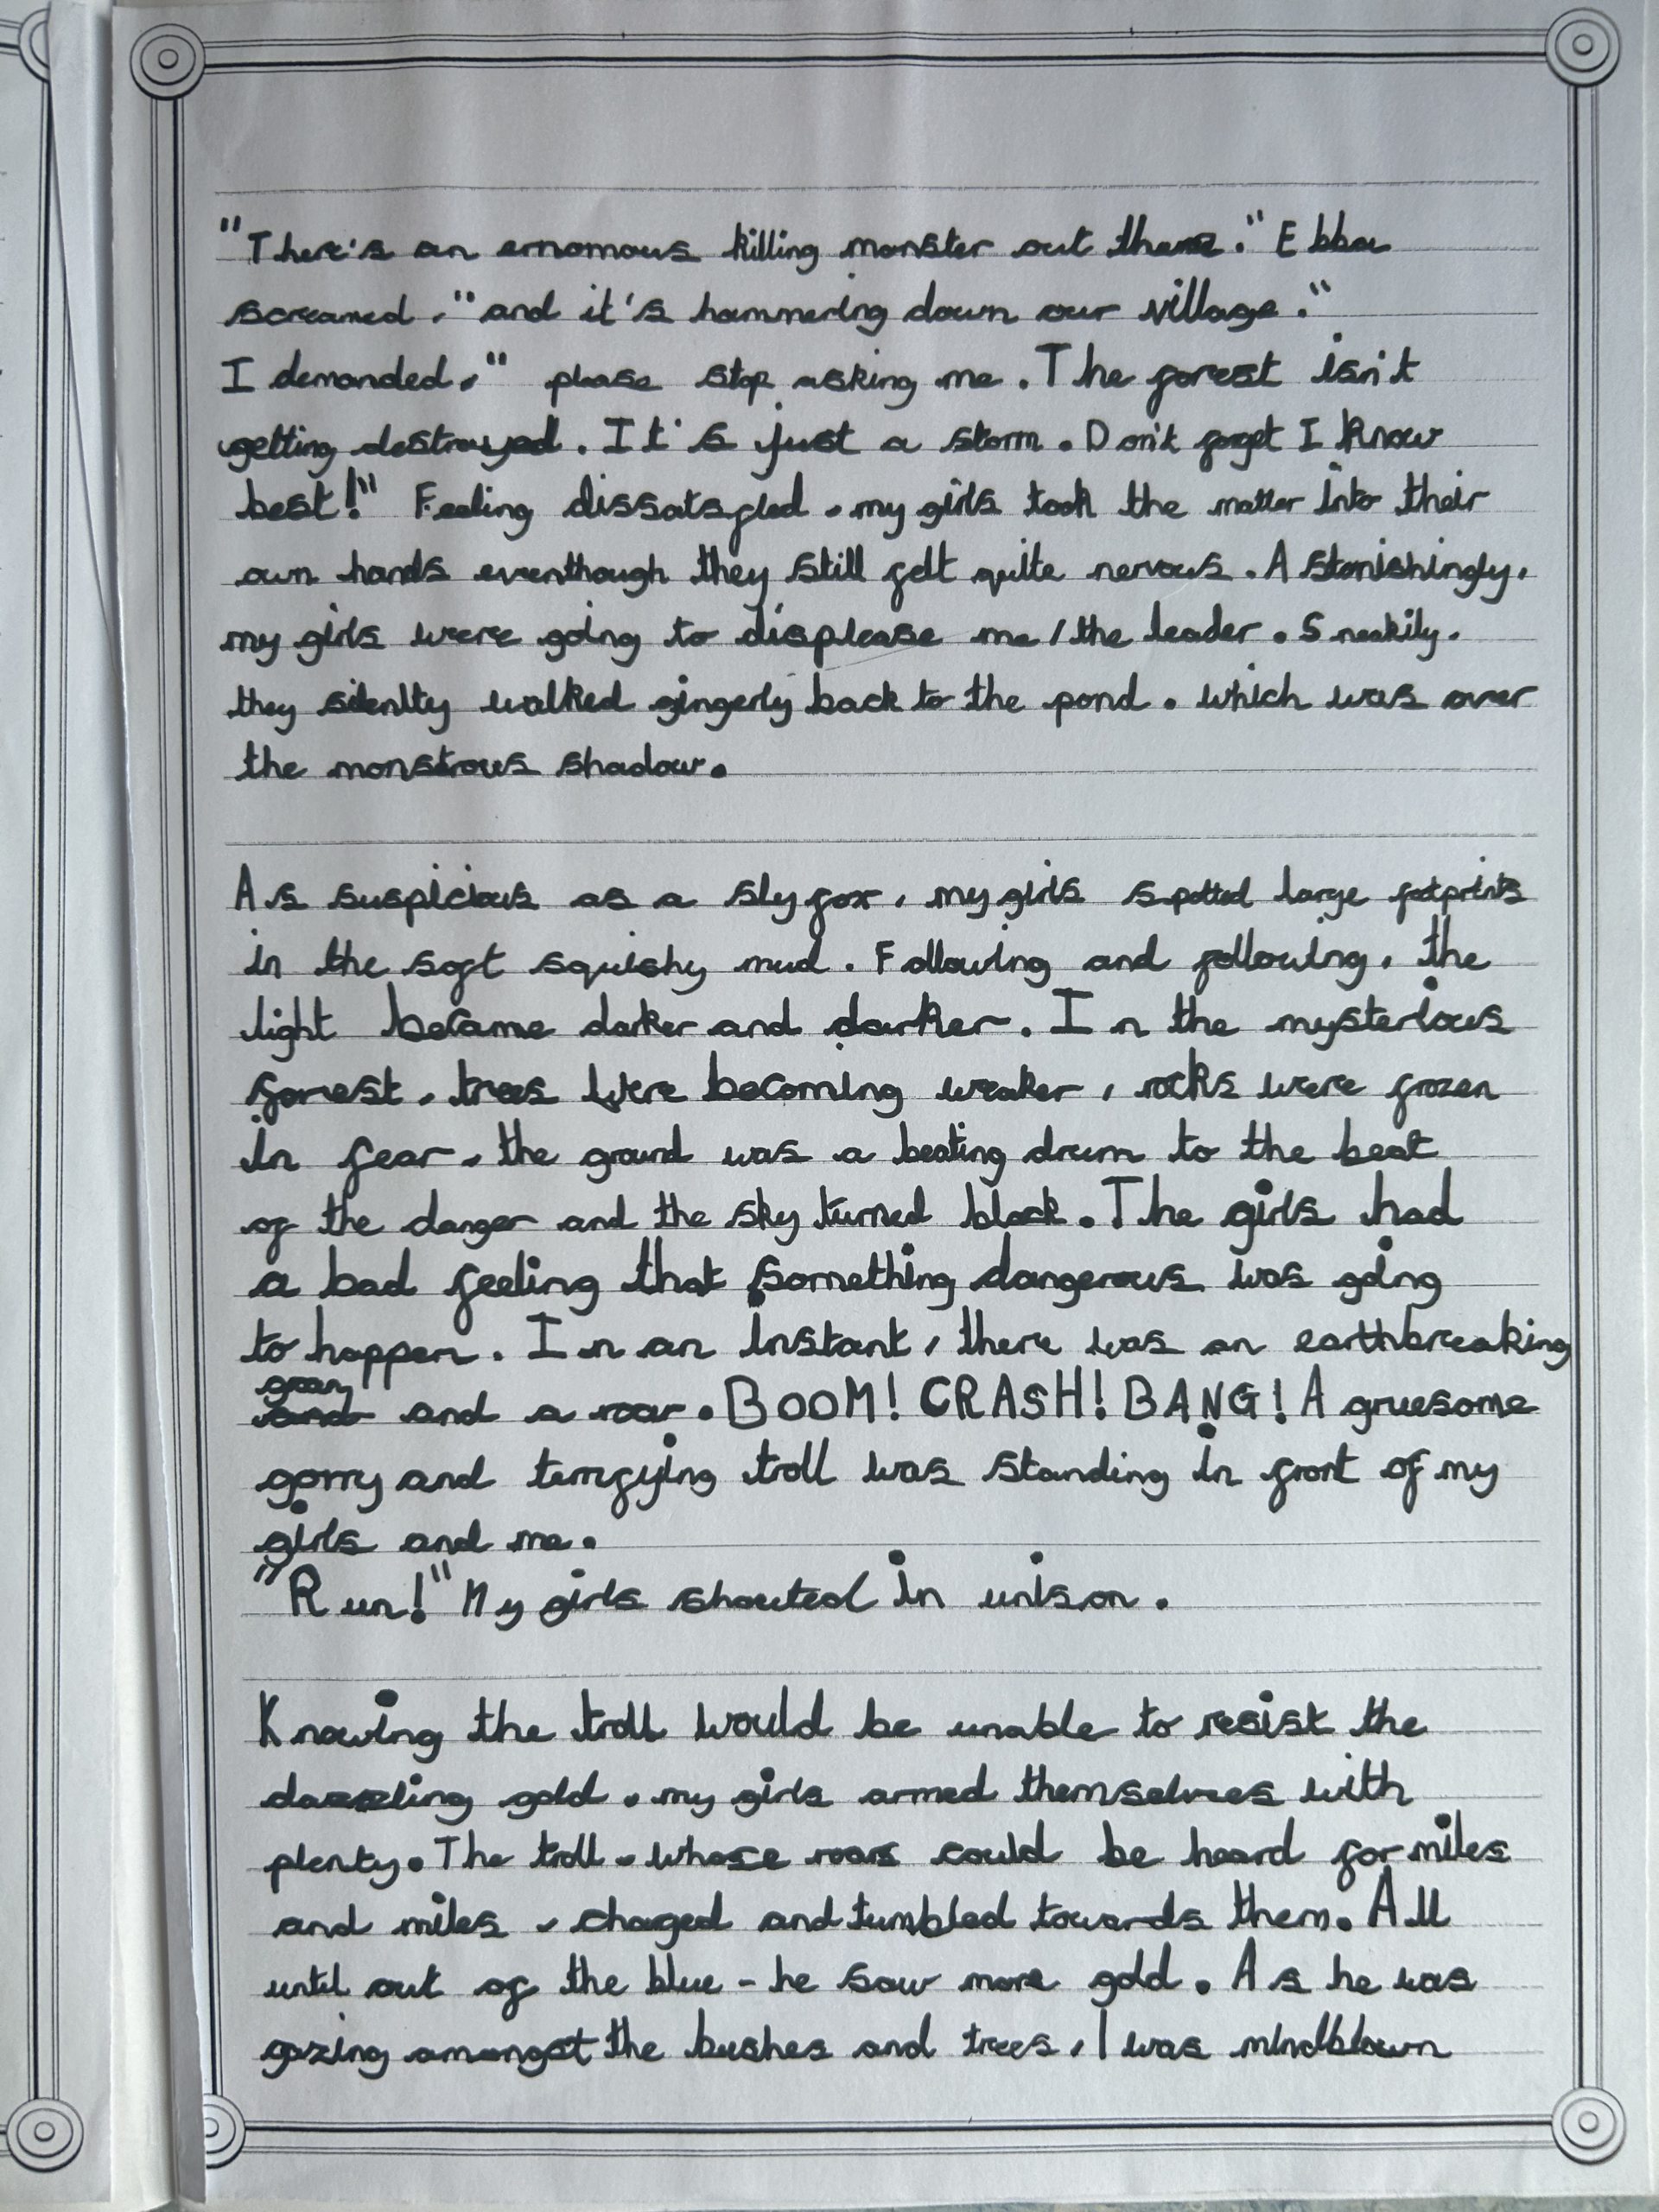 "There's an ernomous killing monster out there." Ebba
screamed, "and it's hammering down our village."
I demanded, " please stop asking me. The forest isn't
getting destroyed. It's just a storm. Don't forget I know
best!" Feeling dissatsfied, my girls took the matter into their
own hands eventhough they still felt quite nervous. Astonishingly,
my girls were going to displease me/the leader. Sneakily,
they silenlty walked gingerly back to the pond, which was over
the monstrous shadow.
As suspicious as a sly fox, my girls spotted large footprints
in the soft squishy mud. Following and following, the
light became darker and darker. In the mysterious
forest, trees were becoming weaker, rocks were frozen
in fear, the ground was a beating drum to the beat
of the danger and the sky turned black. The girls had
a bad feeling that something dangerous was going
to happen. In an instant, there was an earthbreaking
groan
and a roar. BOOM! CRASH! BANG! A gruesome
gorry and terrifying troll was standing in front of my
girls and me.
"Run!" My girls shouted in unison.
Knowing the troll would be unable to resist the
dazzling gold, my girls armed themselves with
plenty. The troll, whose roars could be heard for miles
and miles, charged and tumbled towards them. All
until out of the blue - he saw more gold. As he was
gazing amongst the bushes and trees, I was mindblown